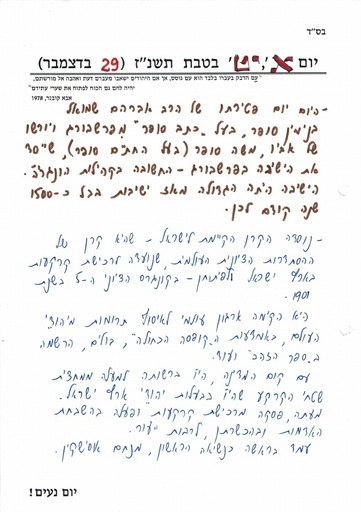 בס״ד
יום א', י"ט' בטבת תשנ"ז (29 בדצמבר)
"עם הדבק בעברו בלבד הוא עם גוסס, אך אם היהודים ישאבו מעברם דעת ואהבה אל מורשתם,
יהיה להם גם הכוח לפתוח את שערי עתידם"
אבא קובנר, 1978
-היום יום פטירתו של הרב אברהם שמואל
בנימין סופר, בעל "כתב סופר" מפרשבורג ויורשו
של אביו, משה סופר (בעל החת"ם סופר), שייסד
את הישיבה בפרשבורג - החשובה בקהילות הונגריה.
הישיבה היתה הגדולה מאז ישיבות בבל כ-1500
שנה קודם לכן.
- נוסדה הקרן הקיימת לישראל - שהיא קרן של
ההסתדרות הציונית העולמית, שנועדה לרכישת קרקעות
בארץ ישראל ולפיתוחן - בקונגרס הציוני ה-5 בשנת
1901.
היא הקימה ארגון עולמי לאיסוף תרומות מיהודי
העולם, באמצעות ה"קופסה הכחולה", בולים, הרשמה
ב"ספר הזהב" ועוד.
עם קום המדינה, היו ברשותה למעלה ממחצית
שטחי הקרקע שהיו בבעלות יהודי ארץ ישראל.
מעתה, פסקה מרכישת קרקעות ופעלה בהשבחת
האדמות ובהכשרתן, לרבות ייעור.
עמד בראשה כנשיאה הראשון, מנחם אוסישקין.
יום נעים!